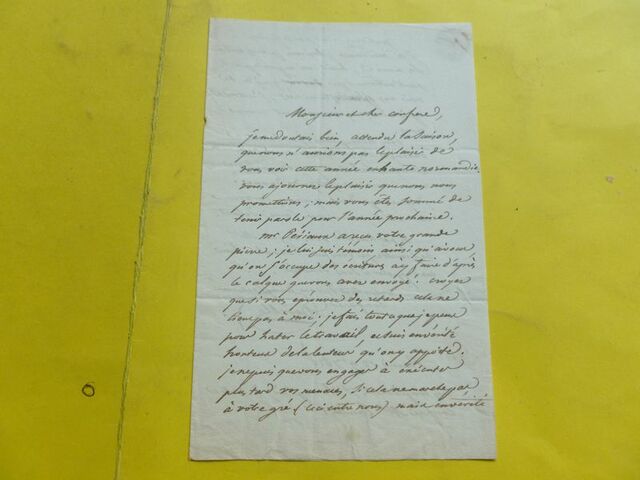 Monsieur et cher confrère,
je me doutais bien, attendu la saison,
que nous n'aurions pas le plaisir de
vous voir cette année en haute normandie.
vous ajournez le plaisir que nous nous
promettions; mais vous êtes sommé de
tenir parole pour l'année prochaine.
mr Périaux a reçu votre grande
pierre; je lui suis témoin ainsi qu'à vous
qu'on s'occupe des écritures à y faire d'après
le calque que vous avez envoyé. croyez
que si vous éprouvez des retards cela ne
tient pas à moi. je fais tout ce que je peux
pour hater le travail, et suis en vérité
honteux de la lenteur qu'on y apporte.
je ne puis que vous engager à exécuter
plus tard vos menaces, si cela ne marche pas
à votre gré (ceci entre nous) mais en vérité